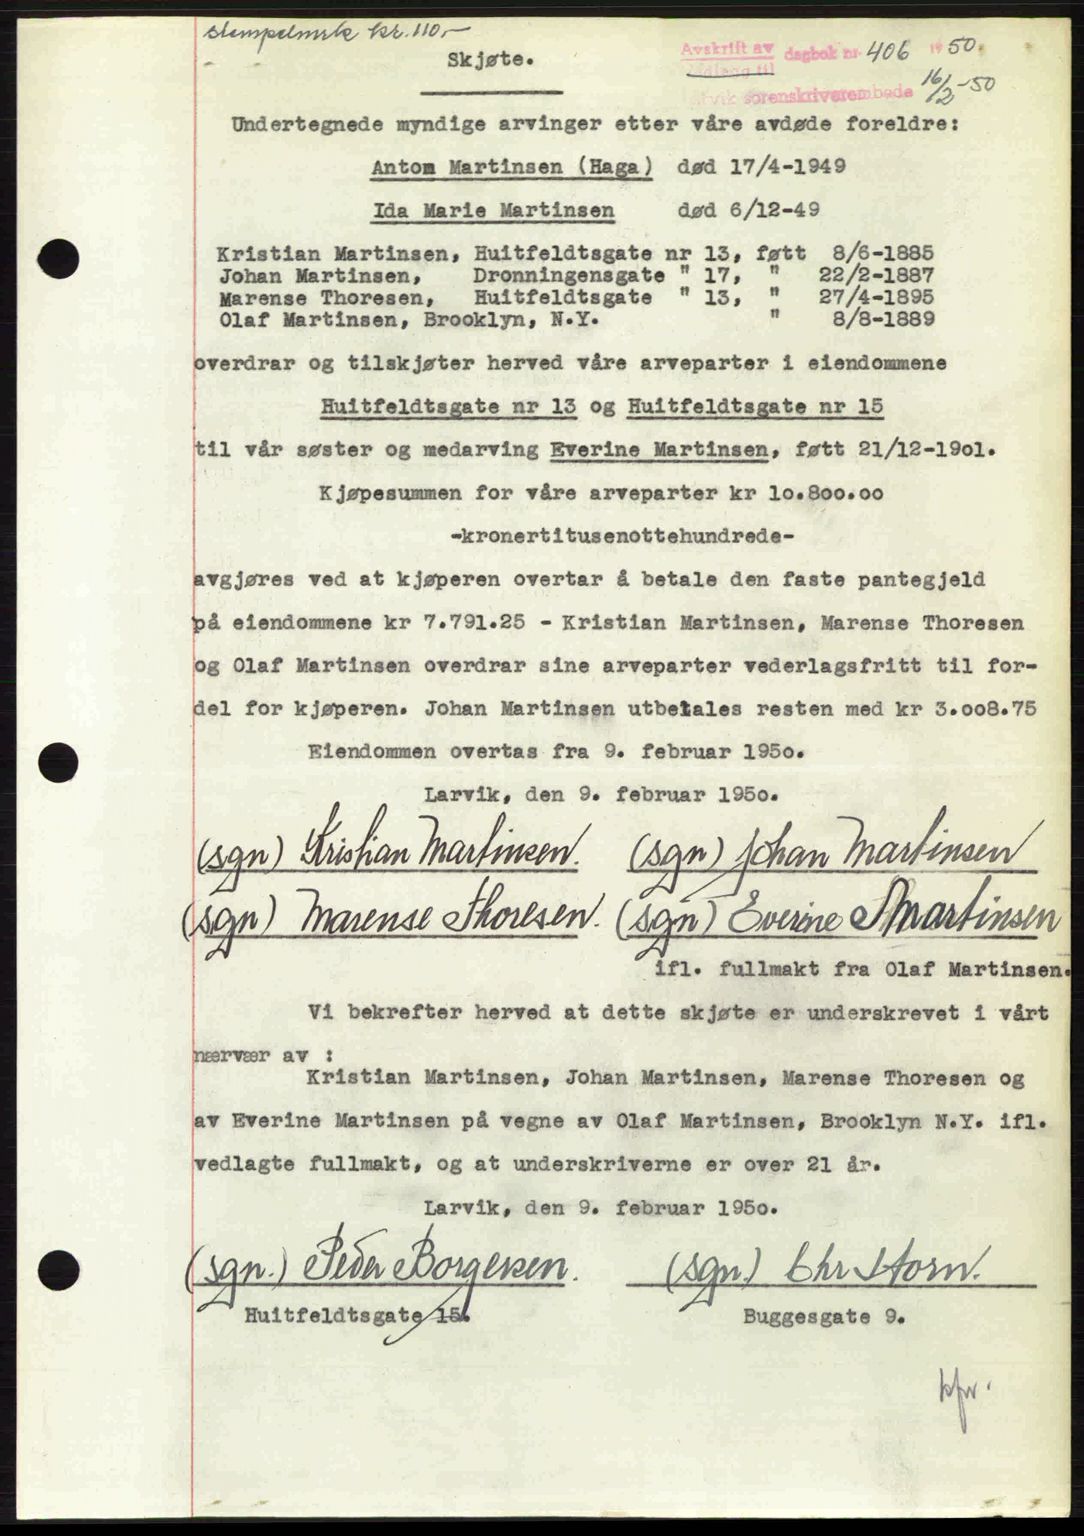 Stempelmrk kr. 110,-
Avskrift av dagbok nr 406 1950.
Bilag til
Larvik sorenskriverembede 16/2-50
Skjøte.
Undertegnede myndige arvinger etter våre avdøde foreldre:
Anton Martinsen (Haga) død 17/4-1949
Ida Marie Martinsen død 6/12-49
Kristian Martinsen, Huitfeldtsgate nr 13, føtt 8/6-1885
Johan Martinsen, Dronningensgate " 17, " 22/2-1887
Marense Thoresen, Huitfeldtsgate " 13, " 27/4-1895
Olaf Martinsen, Brooklyn, N.Y. " 8/8-1889
overdrar og tilskjøter herved våre arveparter i eiendommene
Huitfeldtsgate nr 13 og Huitfeldtsgate nr 15
til vår søster og medarving Everine Martinsen, føtt 21/12-1901.
Kjøpesummen for våre arveparter kr 10.800.00
-kronertitusenottehundrede-
avgjøres ved at kjøperen overtar å betale den faste pantegjeld
på eiendommene kr 7.791.25 - Kristian Martinsen, Marense Thoresen
og Olaf Martinsen overdrar sine arveparter vederlagsfritt til for-
del for kjøperen. Johan Martinsen utbetales resten med kr 3.008.75
Eiendommen overtas fra 9. februar 1950.
Larvik, den 9. februar 1950.
(sgn) Kristian Martinsen. (sgn) Johan Martinsen
(sgn) Marense Thoresen. (sgn) Everine Martinsen
ifl. fullmakt fra Olaf Martinsen.
Vi bekrefter herved at dette skjøte er underskrevet i vårt
nærvær av :
Kristian Martinsen, Johan Martinsen, Marense Thoresen og
av Everine Martinsen på vegne av Olaf Martinsen, Brooklyn N.Y. ifl.
vedlagte fullmakt, og at underskriverne er over 21 år.
Larvik, den 9. februar 1950.
(sgn.) Peder Borgersen. (sgn.) Chr Horn.
Huitfeldtsgate 15. Buggesgate 9.